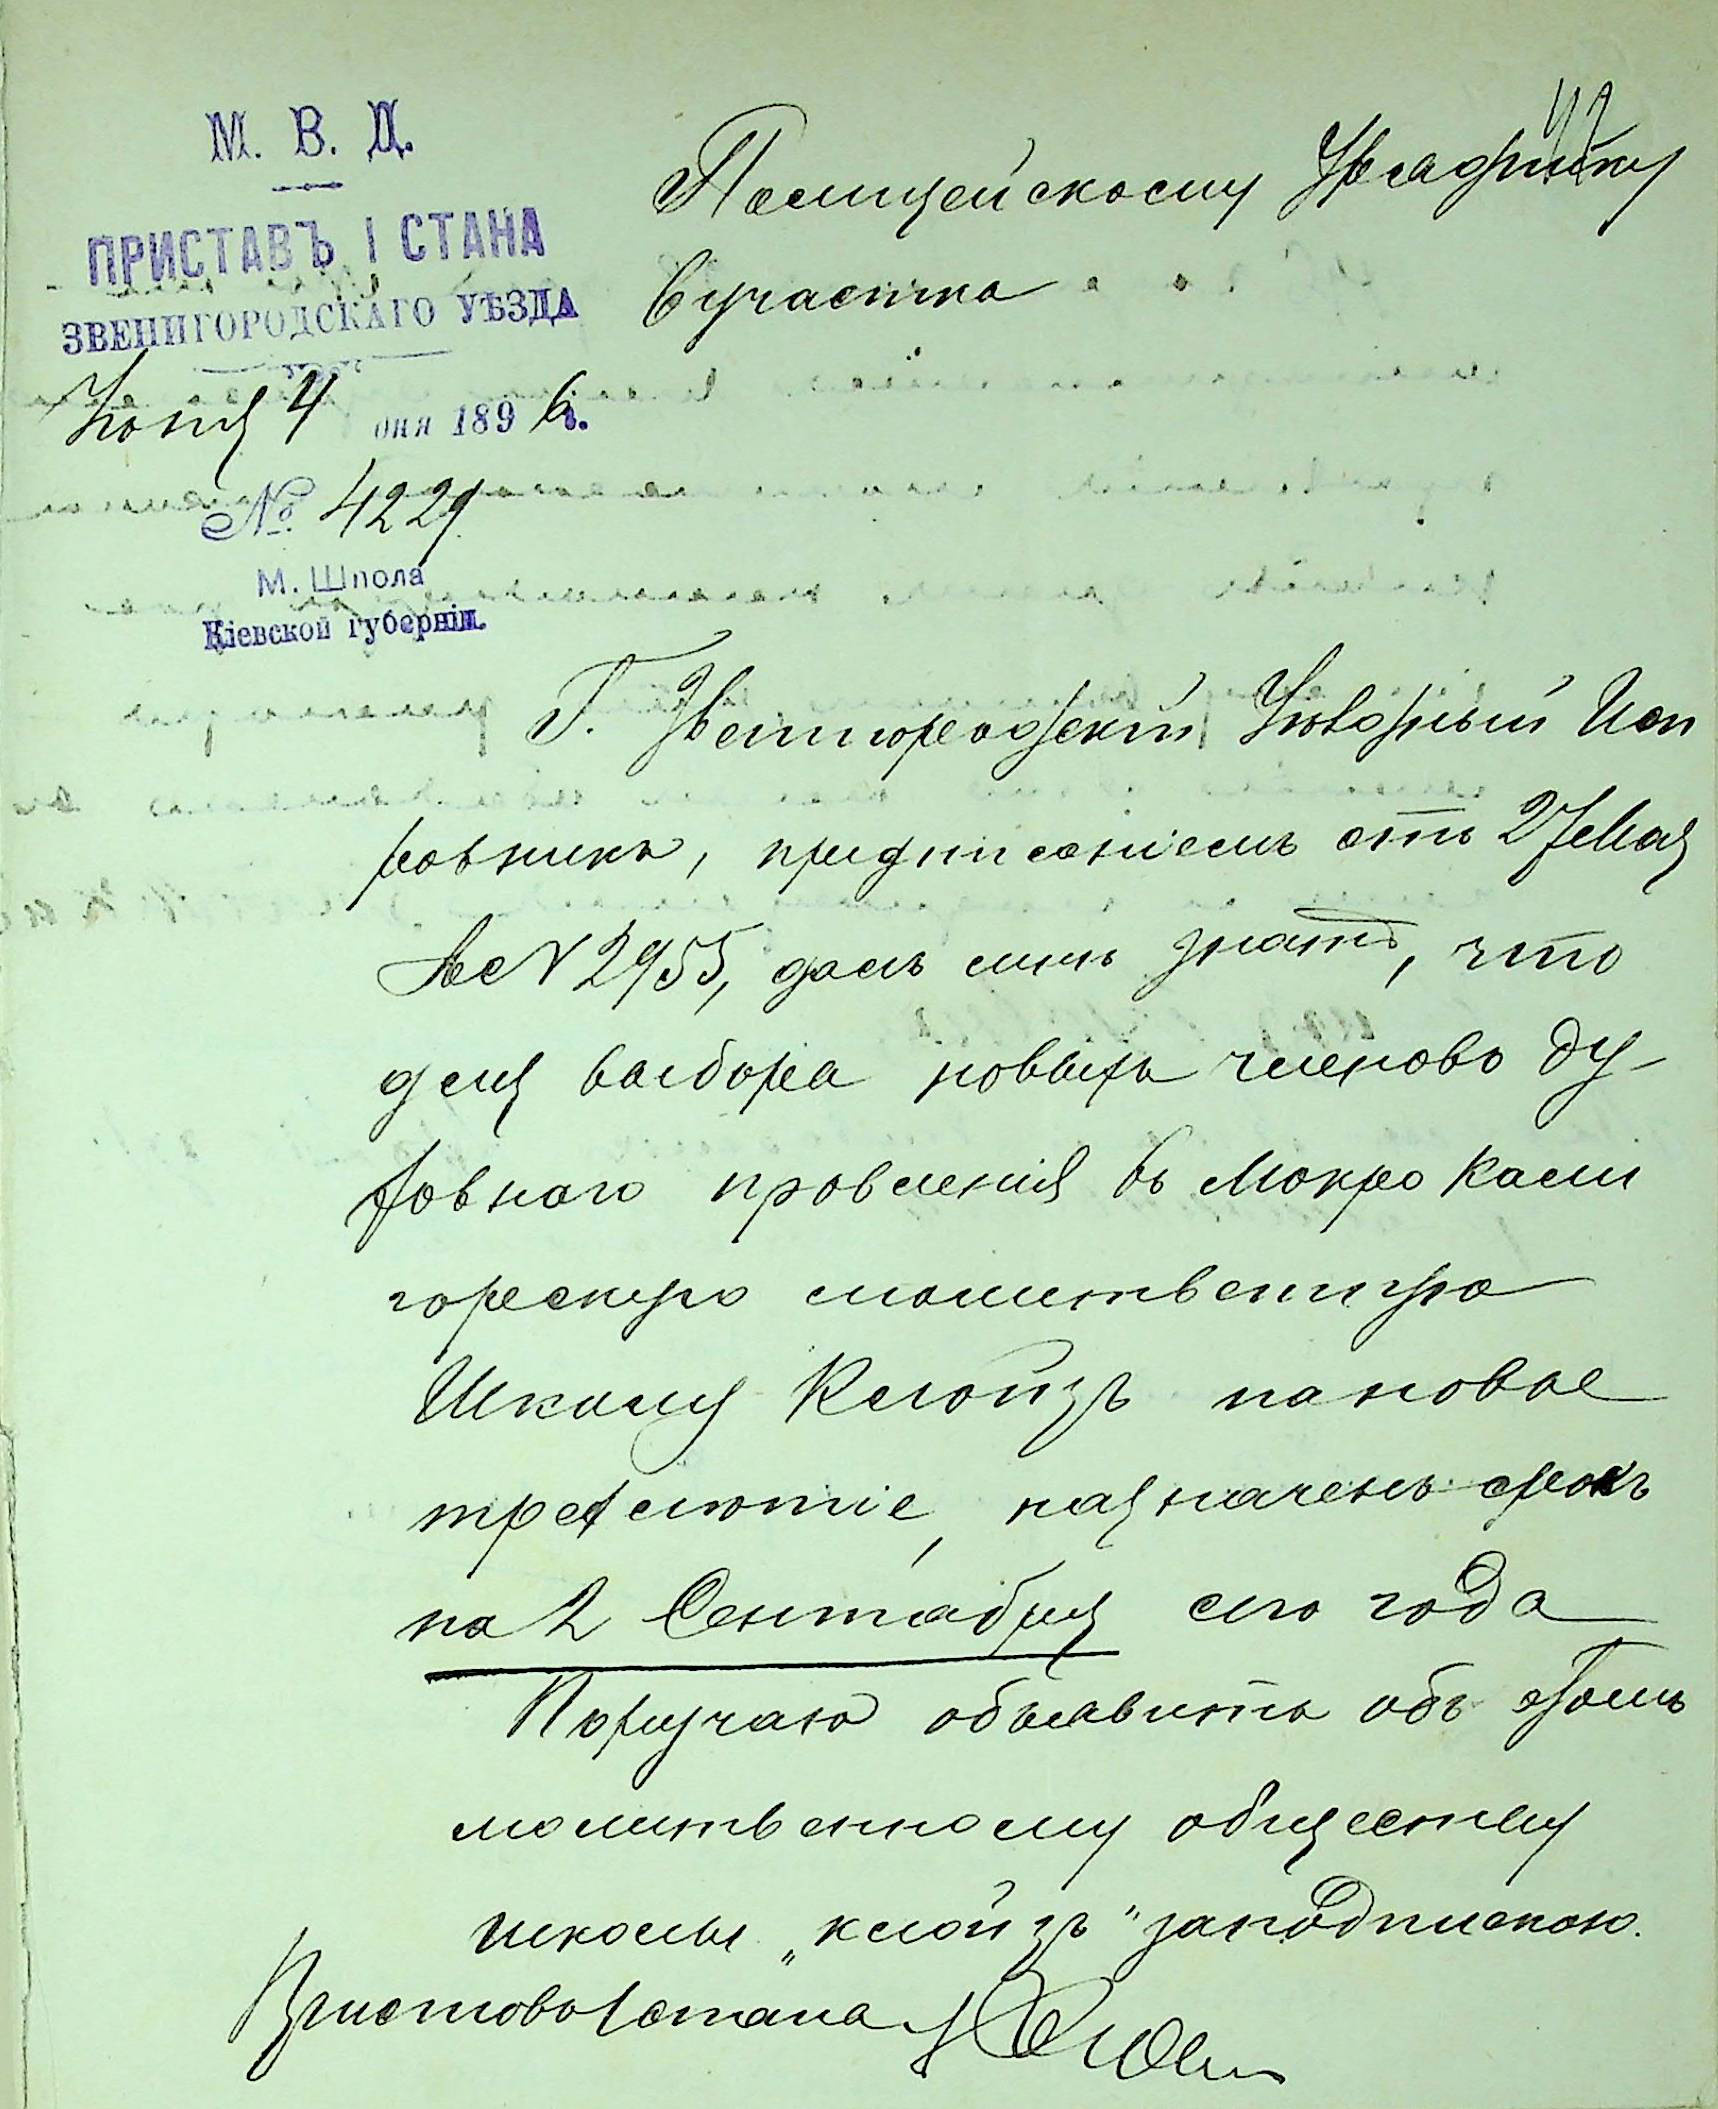 М. В. Д.
ПРИСТАВЪ I СТАНА
ЗВЕНИГОРОДСКАГО УѢЗДА
4 дня 1896 г.
№ 4229
М. Шпола
Кіевской губерніи.
42
Полицейскому Уряднику
6 участка
Г. Звенигородскій Уѣздный Исп
равникъ, предписаніемъ отъ 27 Мая
за № 2955, далъ мнѣ знать, что
для выбора новыхъ членовъ ду-
ховнаго правленія въ Мокро Кали
горскую молитвенную
Школу Клойзъ на новое
трехлѣтіе, назначенъ срокъ
на 2 Сентября сего года
Поручаю объявить объ этомъ
молитвенному обществу
школы „клойзъ" за подпискою.
Приставъ 1 стана